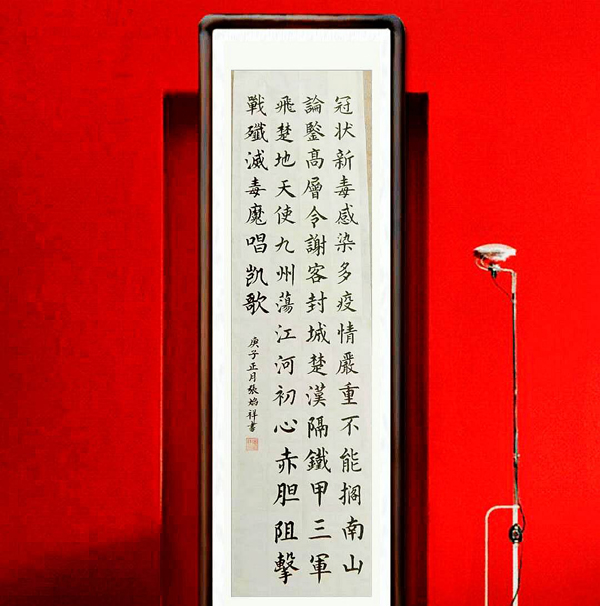 冠状新毒感染多疫情嚴重不能搁南山
論鑒髙層令謝客封城楚漢隔鐵甲三軍
飛楚地天使九州蕩江河初心赤胆阻擊
戰殲滅毒魔唱凯歌
庚子正月張焰祥書